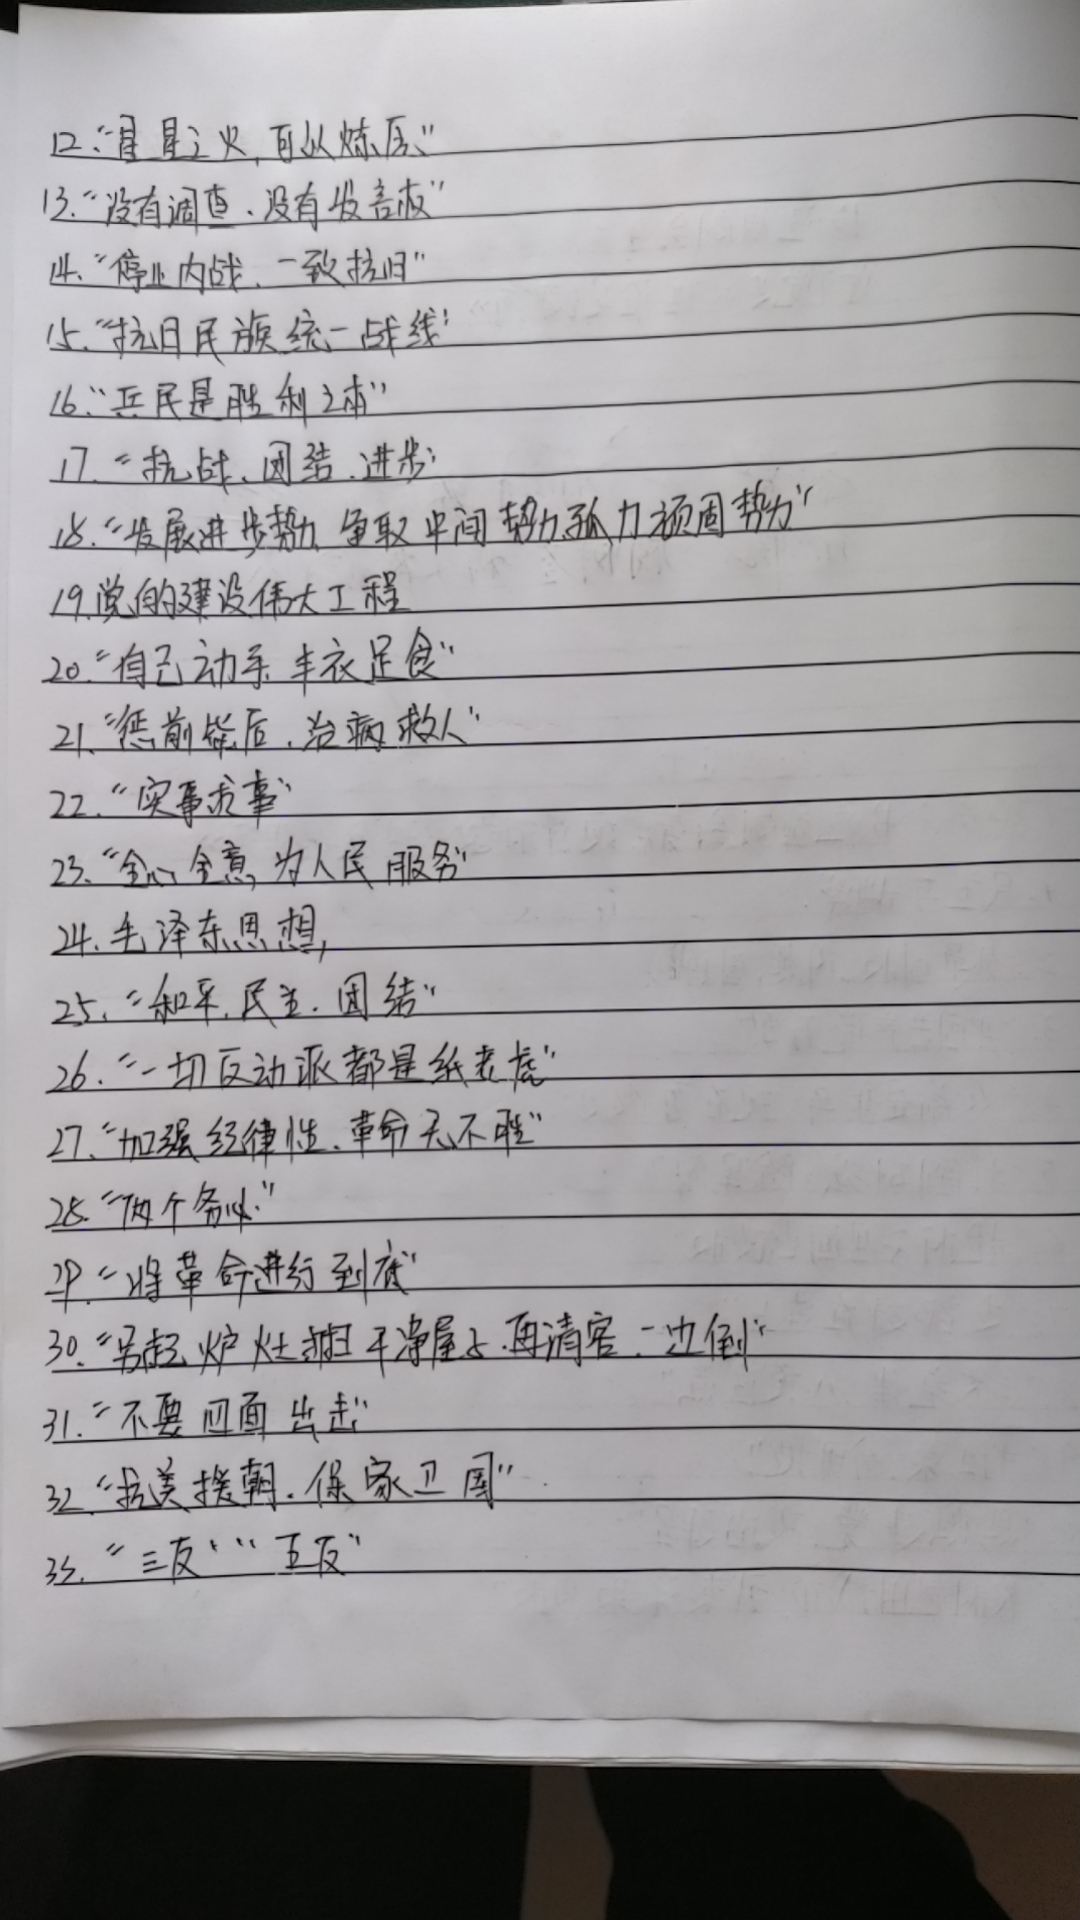 12."星星之火,可以燎原"
13."没有调查、没有发言权"
14."停止内战、一致抗日"
15."抗日民族统一战线"
16."兵民是胜利之本"
17."抗战、团结、进步"
18."发展进步势力 争取中间势力孤力顽固势力"
19.党的建设伟大工程
20."自己动手 丰衣足食"
21."惩前毖后、治病救人"
22."实事求事"
23."全心全意为人民服务"
24.毛泽东思想
25."和平、民主、团结"
26."一切反动派都是纸老虎"
27."加强纪律性、革命无不胜"
28."两个务必"
29."将革命进行到底"
30."另起炉灶 扫干净屋子、再请客、一边倒"
31."不要四面出击"
32."抗美援朝、保家卫国"
33."三反""五反"